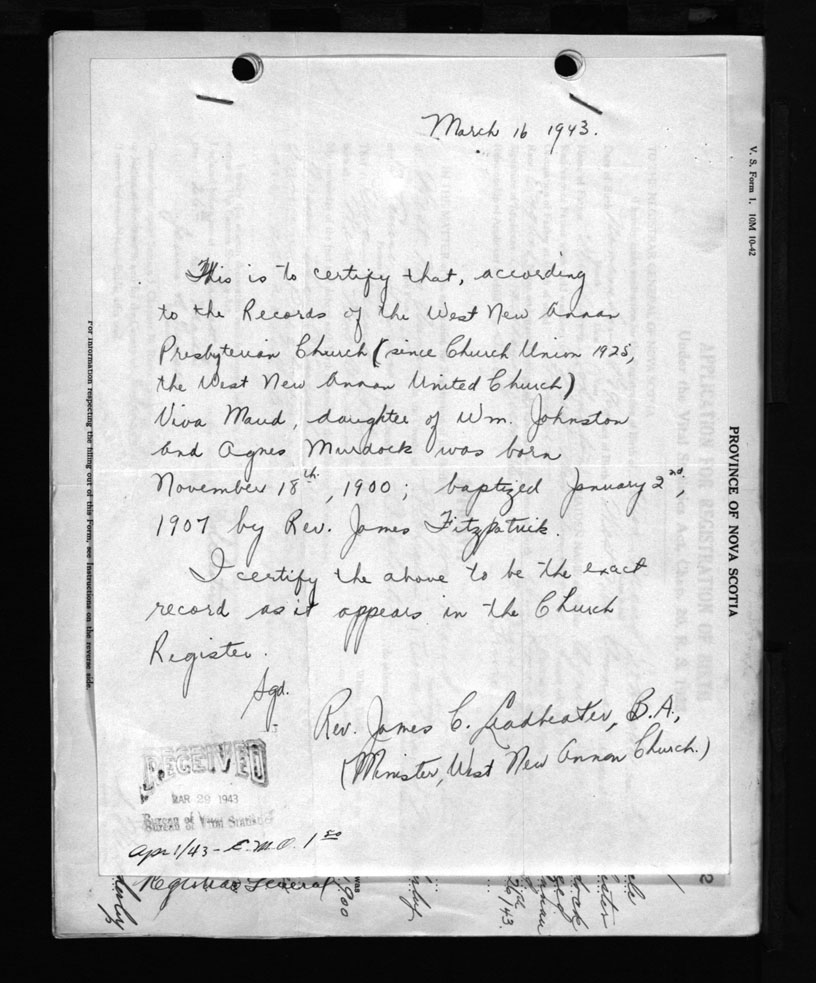 March 16 1943.
This is to certify that, according
to the Records of the West New Annan
Presbyterian Church (since Church Union 1925,
the West New Annan United Church)
Viva Maud, daughter of Wm. Johnston
and Agnes Murdock was born
November 18th, 1900; baptized January 2nd,
1907 by Rev. James Fitzpatrick.
I certify the above to be the exact
record as it appears in the Church
Register.
Sgd.
Rev. James C. Leadbeater, B.A.,
(Minister, West New Annan Church.)
RECEIVED
MAR 29 1943
Bureau of Vital Statistics
Apr 1/43 - C.M.O. 1 50
Registrar General
was
1900
26/43.
V. S. Form 1. 10M 10-42
PROVINCE OF NOVA SCOTIA
APPLICATION FOR REGISTRATION OF
Under the Vital Statistics Act,
For information respecting the filling out of this Form, see Instructions on the reverse side.